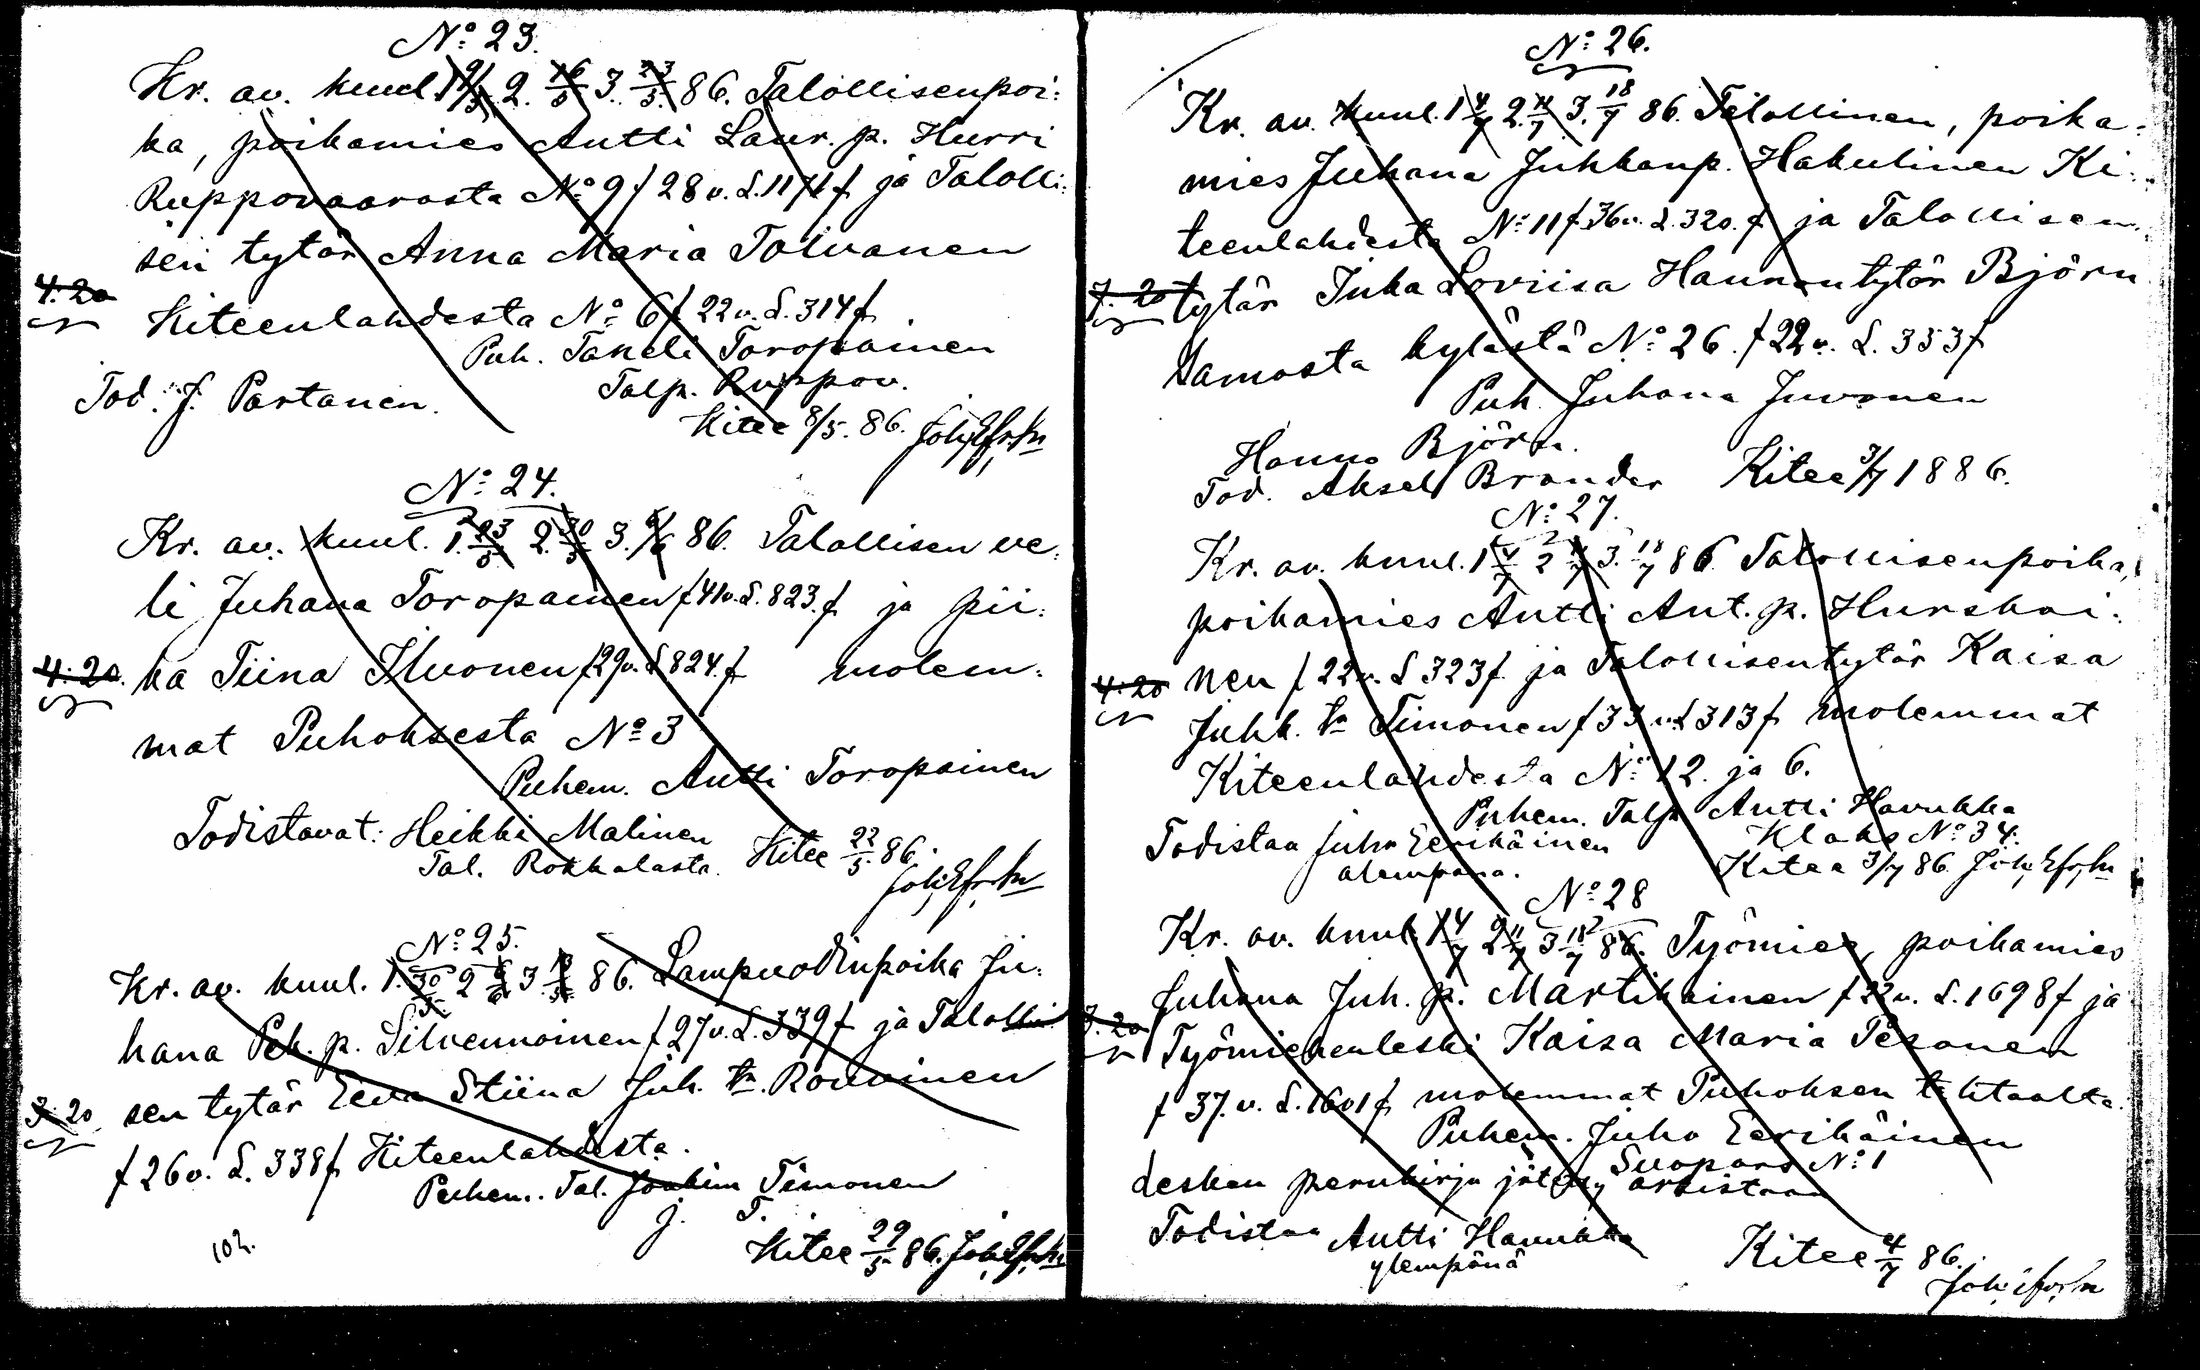 Nº 23.
Kr. av. kuul. 1 9/5 2. 16/5 3. 23/5. 86. Talollisenpoi:
ka, poikamies Antti Laur. p. Hurri
Ruppovaarasta Nº 9 f 28 v. S. 1171 f ja Talolli:
sen tytär Anna Maria Tolvanen
4: 20
Kiteenlahdesta Nº 6 f 22 v. S. 314 f.
Puh. Taneli Toropainen
Talp. Ruppov.
Tod. J. Partanen.
Kitee 8/5. 86.
Nº 24.
Kr. av. kuul. 1. 23/5 2. 30/5 3. 6/6 86. Talollisen ve:
li Juhana Toropainen f 41 v. S. 823. f ja pii:
4: 20. ka Tiina Ikonen f 29 v. S 824. f molem:
mat Puhoksesta Nº 3
Puhem. Antti Toropainen
Todistavat: Heikki Malinen
Tal. Rokkalasta. Kitee 22/5 86.
Nº 25.
Kr. av. kuul. 1. 30/5 2 6/6 3. 86. Lampuodinpoika Ju:
hana Pek. p. Silvennoinen f 27 v. S. 339 f ja Talolli
3: 20 sen tytär Eeva Stiina Juh. tr. Rouvinen
f 26 v. S. 338 f Kiteenlahdesta.
Puhem. Tal. Joakim Timonen
J. T.
Kitee 29/5 86.
102.
Nº 26.
Kr. av. kuul. 1 4/7 2. 11/7 3. 18/7 86. Talollinen, poika:
mies Juhana Juhkanp. Hakulinen Ki:
teenlahdesta Nº 11 f. 36 v. S. 320. f ja Talollisen
7: 20 tytär Inka Loviisa Hannun tytär Björn
samasta kylästä Nº 26. f 22 v. S. 353 f
Puh. Juhana Juvonen
Hannu Björn.
Tod. Aksel Brander Kitee 3/7 1886.
Nº 27.
Kr. av. kuul. 1 4/7 2 11/7 3. 18/7 86. Talollisenpoika,
poikamies Antti Ant. p. Hurskai:
4: 20 nen f 22 v. S 323 f. ja Talollisentytär Kaisa
Juhk. tr Timonen f 33 v. S 313 f molemmat
Kiteenlahdesta Nº 12. ja 6.
Puhem. Talp Antti Havukka
Klaks Nº 34.
Todistaa Juho Eerikäinen
alempana.
Kitee 3/7 86.
Nº 28
Kr. av. kuul. 1 4/7 2 11/7 3 18/7 86. Työmies, poikamies
Juhana Juh. p. Martikainen f 22 v. S. 1698 f ja
3: 20 Työmiehenleski Kaisa Maria Pesonen
f 37. v. S. 1601 f molemmat Puhoksen tehtaalta.
Puhem. Juho Eerikäinen
Suopars Nº 1
lesken perukirja jätetty
Todistaa Antti Havukka
ylempänä
Kitee 4/7 86.